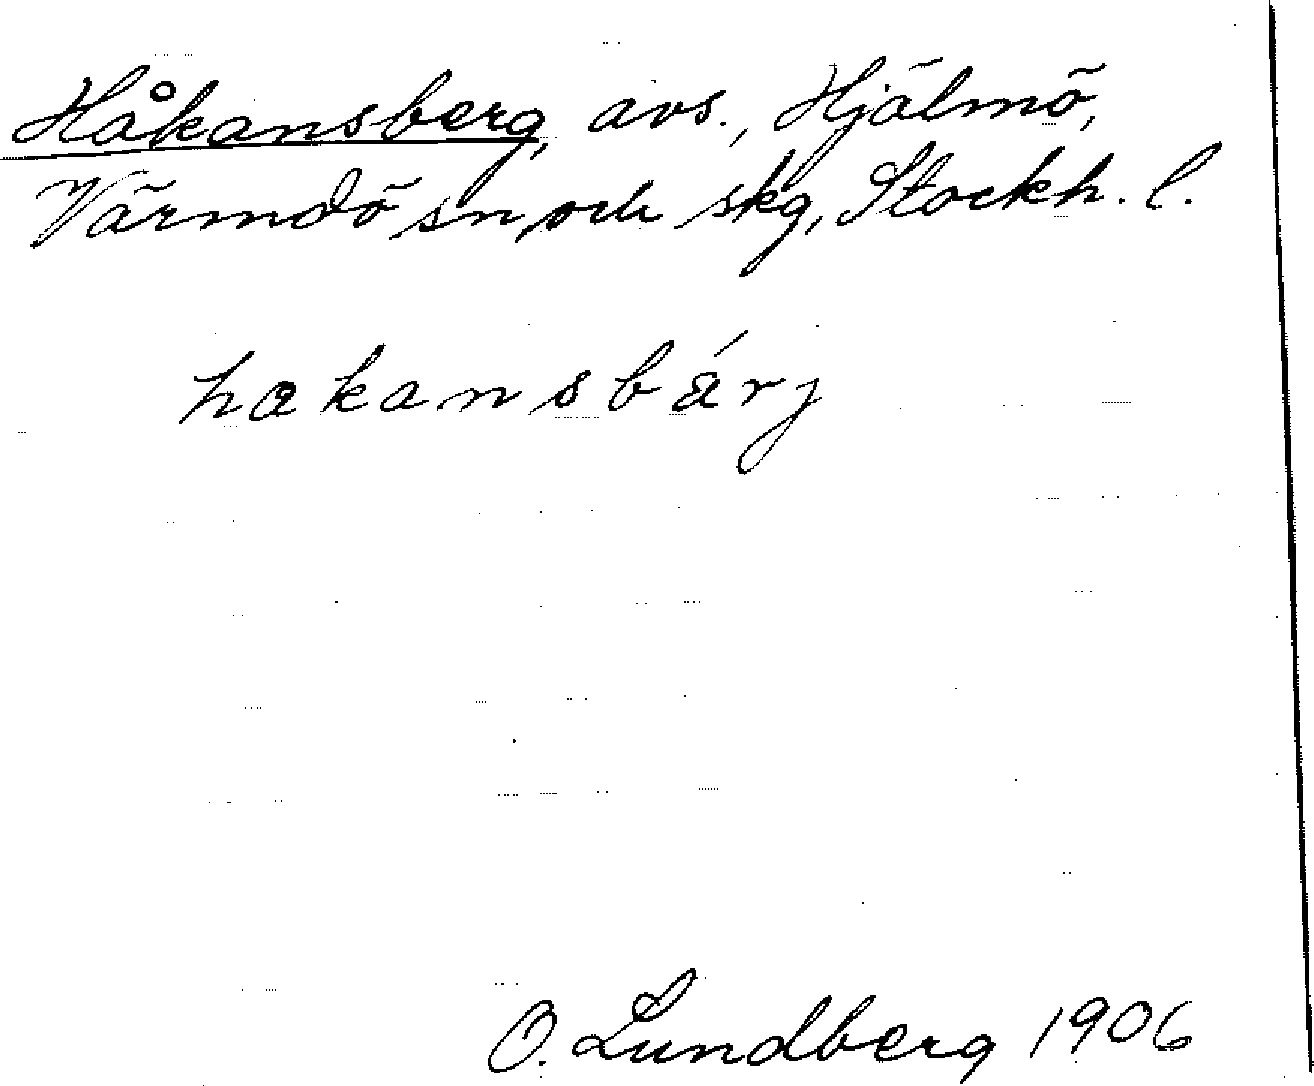 Håkansberg, avs., Hjälmö,
Värmdö sn och skg, Stockh. l.
hakansbärj
O. Lundberg 1906